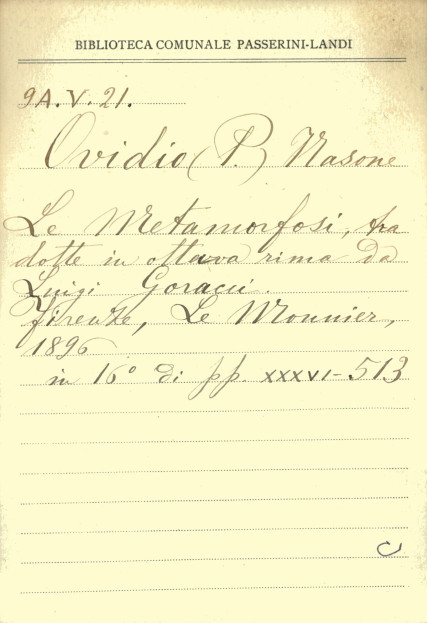 BIBLIOTECA COMUNALE PASSERINI-LANDI
9A.V.21.
Ovidio (P.) Nasone
Le Metamorfosi, tra
dotte in ottava rima da
Luigi Goracci.
Firenze, Le Monnier,
1896
in 16° di pp. XXXVI-513
C